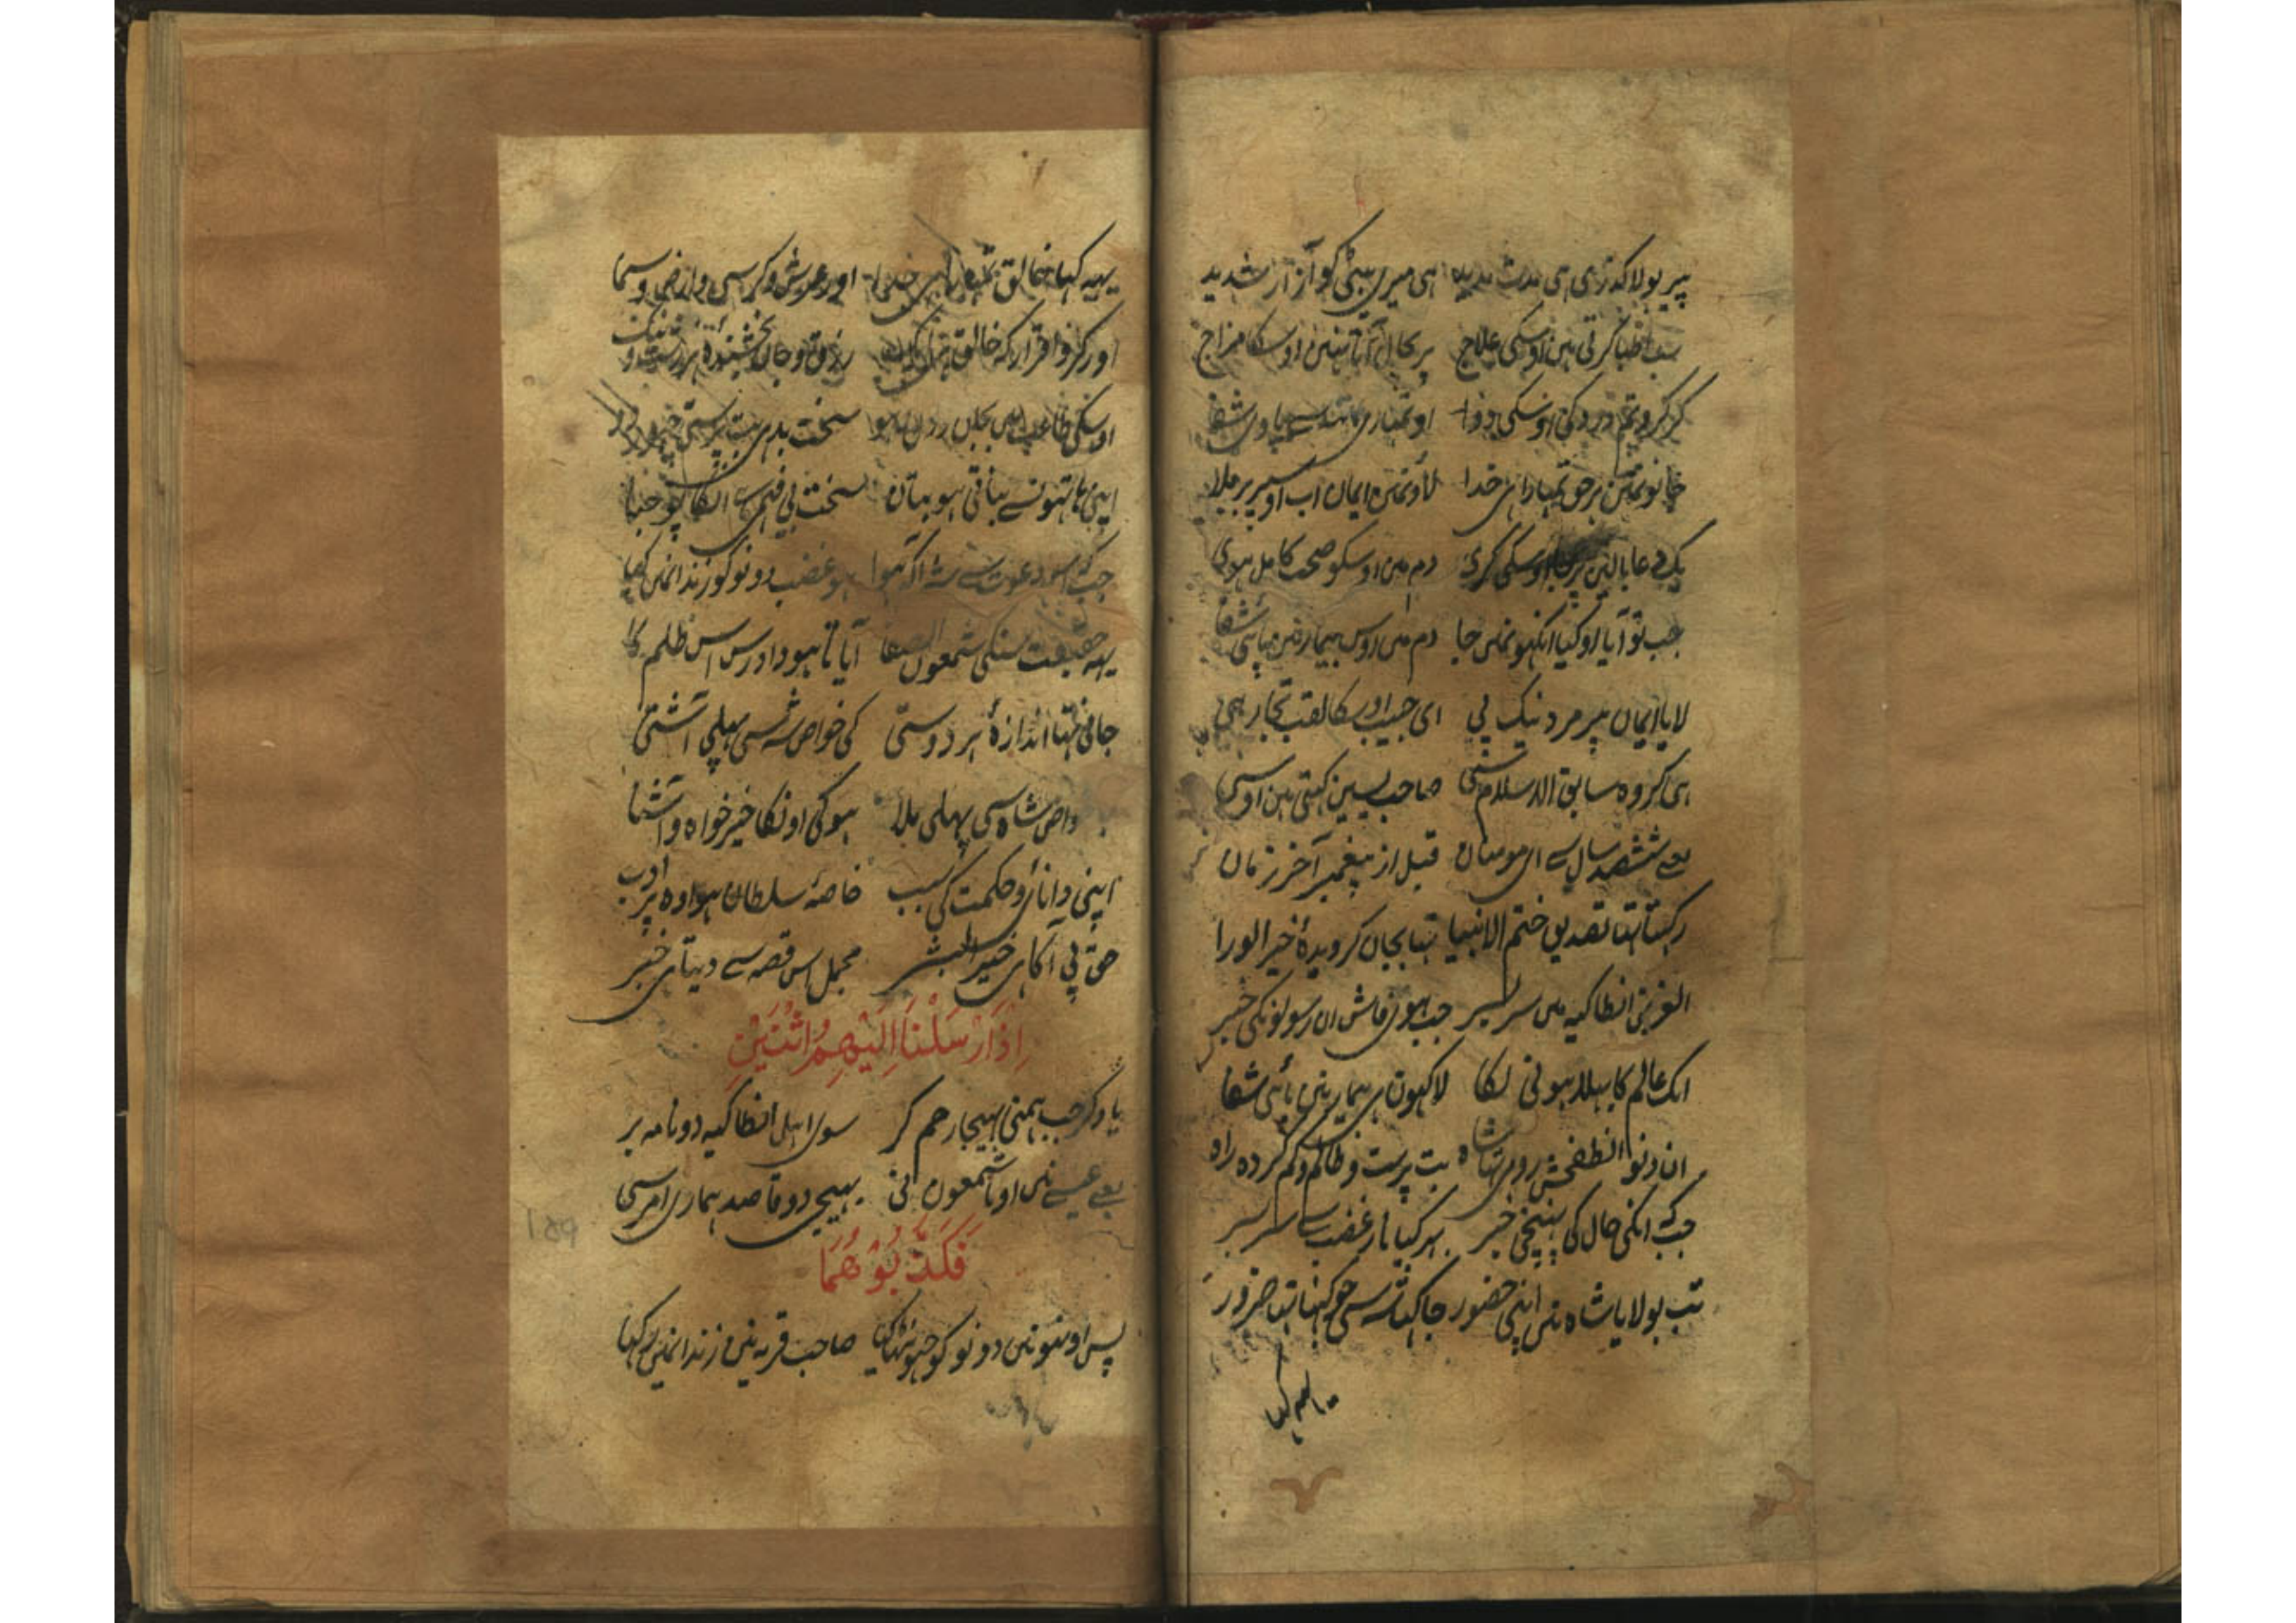 پیر بولا کدتری ہی مدت مدید ہی میری بیٹی کو آزار شدید
سب اطبا کرتی ہین اوسکی علاج پر بحال آتا نہین اوسکا مزاج
گر کرو تم درد کی اوسکی دوا اور تمہاری ہاتہہ سے پاوی شفا
جانو نمین برحق تمہارا ہی خدا لاؤ نمین ایمان اب اوسپر برملا
یک دعا بالین پر اوسکی کری دم مین اوسکو صحت کامل ہوی
جب تو آیا او کیا انکہونمین جا دم مین اوس بیمار نین پائی شفا
لایا ایمان پیر مرد نیک پی ای حبیب اوسکا لقب نجار ہی
ہی کروہ سابق الاسلام سی صاحب یسین کہتی ہین اوسی
یعے ششصد سال سے ای مومنان قبل از پیغمبر آخر زمان
رکہتا تہا تصدیق ختم الانبیا تہا بجان کرویدۂ خیر الورا
الغرض انطاکیہ مین سر بسر جب ہوی فاش ان رسولونکی خبر
انک عالم کا ہیلا ہونی لکا لاکہون ہی بیمار نین پائی شفا
ان دنو انطفخش رومی تہا شاہ بت پرست و ظالم و کم کردہ راہ
جب کہ انکی حال کی پہنچی خبر بہر کیا نار غضب سے سر بسر
تب بولایا شاہ نین اپنی حضور جا کہا شہ سی جو کہنا تہا ضرور
یہہ کہا خالق تمہارا ہی خدا اور عرش و کرسی و ارض و سما
اور کرو اقرار کہ خالق رزق و جان بخشندہ
اوسکی طاعت بجان و دل سخت بد ہی بت پرستی
اپنی ہاتہونسے بناتی ہو بتان سخت بی فہمی ہے انکا پوجنا
جب کہ اس دعوت سے شہ آکہ ہوا ہو غضب دونو کو زندانمین کیا
یہہ حقیقت سنکی شمعون الصفا آیا تا ہو دادرس اس ظلم کا
جانی تہا اندازۂ ہر دوستی کی خواص شہ سی پہلی آشتی
واص شاہ سی پہلی ملا ہو کی اونکا خیر خواہ و آشنا
اپنی دانائ و حکمت کی سبب خاصۂ سلطان ہوا وہ پر ادب
حق پی آکاہی خیر البشر مجمل اس قصہ سے دیتا ہی خبر
اِذْ اَرْسَلْنَا اِلَیْهِمُ اثْنَیْنِ
یاد کر جب ہمنی بہیجا رحم کر سوی اہل انطاکیہ دو نامہ بر
یعے عیسے نین او یا شمعون نی بہیجی دو قاصد ہماری امر سی
فَکَذَّبُوْهُمَا
پس اونہونین دونو کو جہوٹہا کیا صاحب قریہ نین زندانمین رکہا